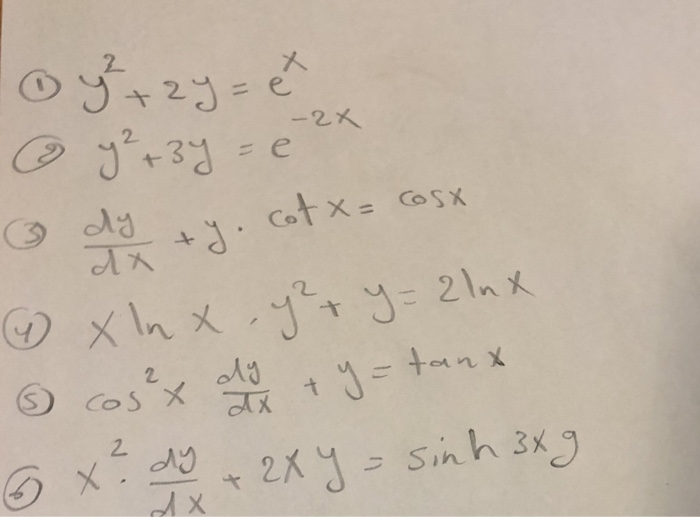 ① y² + 2y = eˣ
② y² + 3y = e⁻²ˣ
③ dy/dx + y · cot x = cos x
④ x ln x · y² + y = 2 ln x
⑤ cos² x dy/dx + y = tan x
⑥ x² · dy/dx + 2xy = sinh 3x g